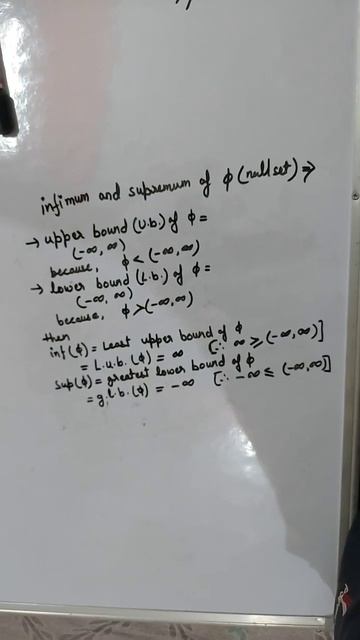 infimum and supremum of ϕ (null set) ⇒
→ upper bound (U.b.) of ϕ =
(-∞, ∞)
because, ϕ < (-∞, ∞)
→ lower bound (L.b.) of ϕ =
(-∞, ∞)
because, ϕ > (-∞, ∞)
then
inf(ϕ) = Least upper bound of ϕ
= L.u.b.(ϕ) = ∞ [∵ ∞ ≥ (-∞, ∞)]
sup(ϕ) = greatest lower bound of ϕ
= g.l.b.(ϕ) = -∞ [∵ -∞ ≤ (-∞, ∞)]